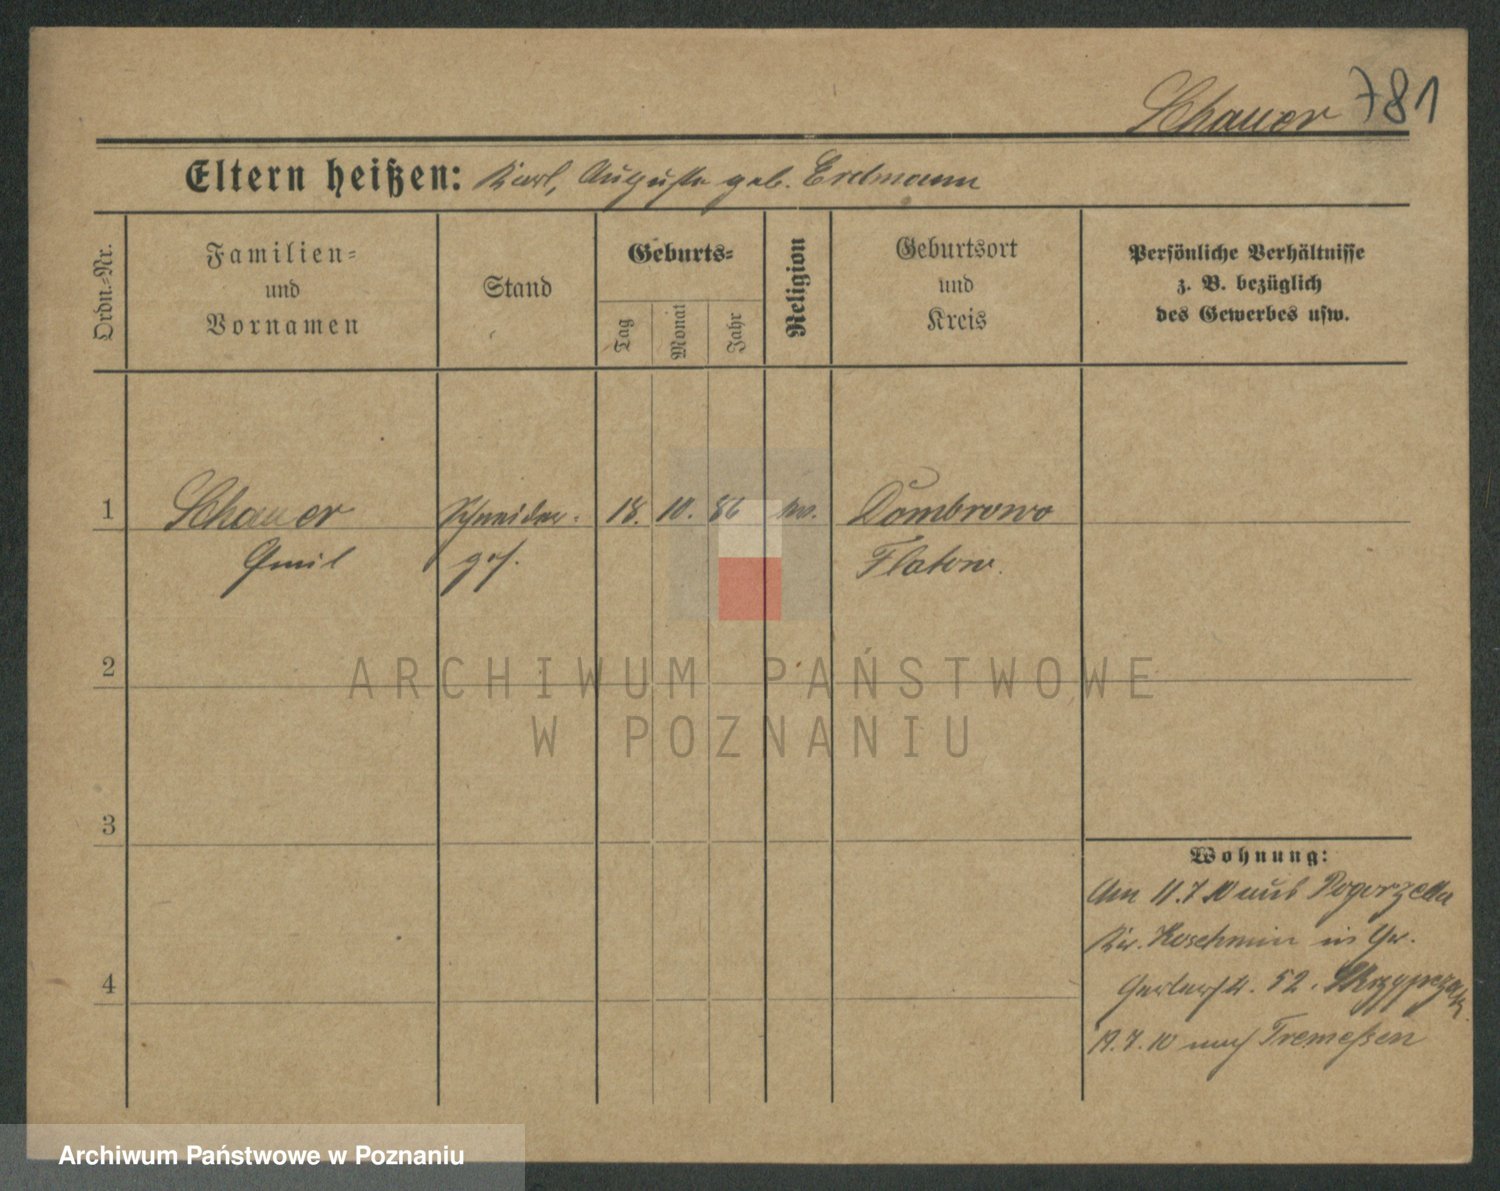 Schauer 781
Eltern heißen: Karl, Auguste geb. Erdmann
Ordn.-Nr.
Familien-
und
Vornamen
Stand
Geburts-
Tag
Monat
Jahr
Religion
Geburtsort
und
Kreis
Persönliche Verhältnisse
z. B. bezüglich
des Gewerbes usw.
1 Schauer Schneider- 18. 10. 86 Dombrowo
Emil ges. Flatow.
2
3
4
Wohnung:
Am 11.7.10 aus Pogorzella
Kr. Koschmin in
52. Skrzypczak
19.7.10 nach Tremeßen
ARCHIWUM PAŃSTWOWE
W POZNANIU
Archiwum Państwowe w Poznaniu